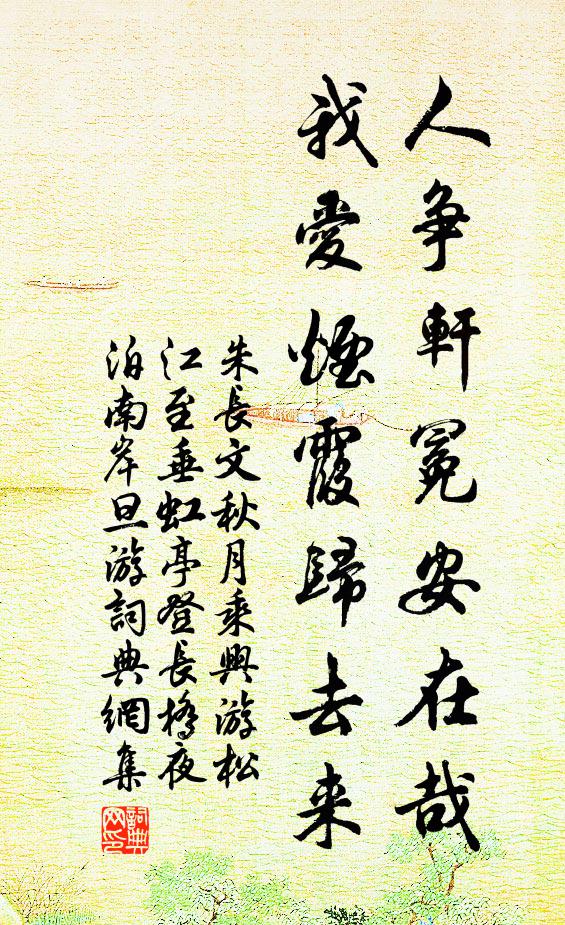 人争軒冕安在哉
我愛煙霞歸去来
朱長文秋月乘興游松
江至垂虹亭登長橋夜
泊南岸旦游詞典網集
詞典
网印